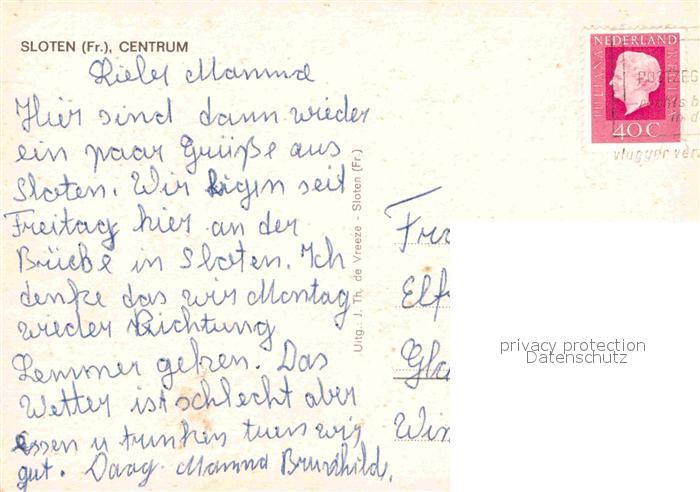 SLOTEN (Fr.), CENTRUM
Liebes Mamma
Hier sind dann wieder
ein paar Grüße aus
Sloten. Wir ligen seit
Freitag hier an der
Brücke in Sloten. Ich
denke das wir Montag
wieder Richtung
Lemmer gehen. Das
Wetter ist schlecht aber
essen u trinken tuen wir
gut. Daag Mamma Brunhilde,
Uitg. J. Th. de Vreeze - Sloten (Fr.)
NEDERLAND
JULIANA REGINA
40 C
POSTZEG
rechts b
in d
vlugger ver
Fr
Elf
Gl
Win
privacy protection
Datenschutz